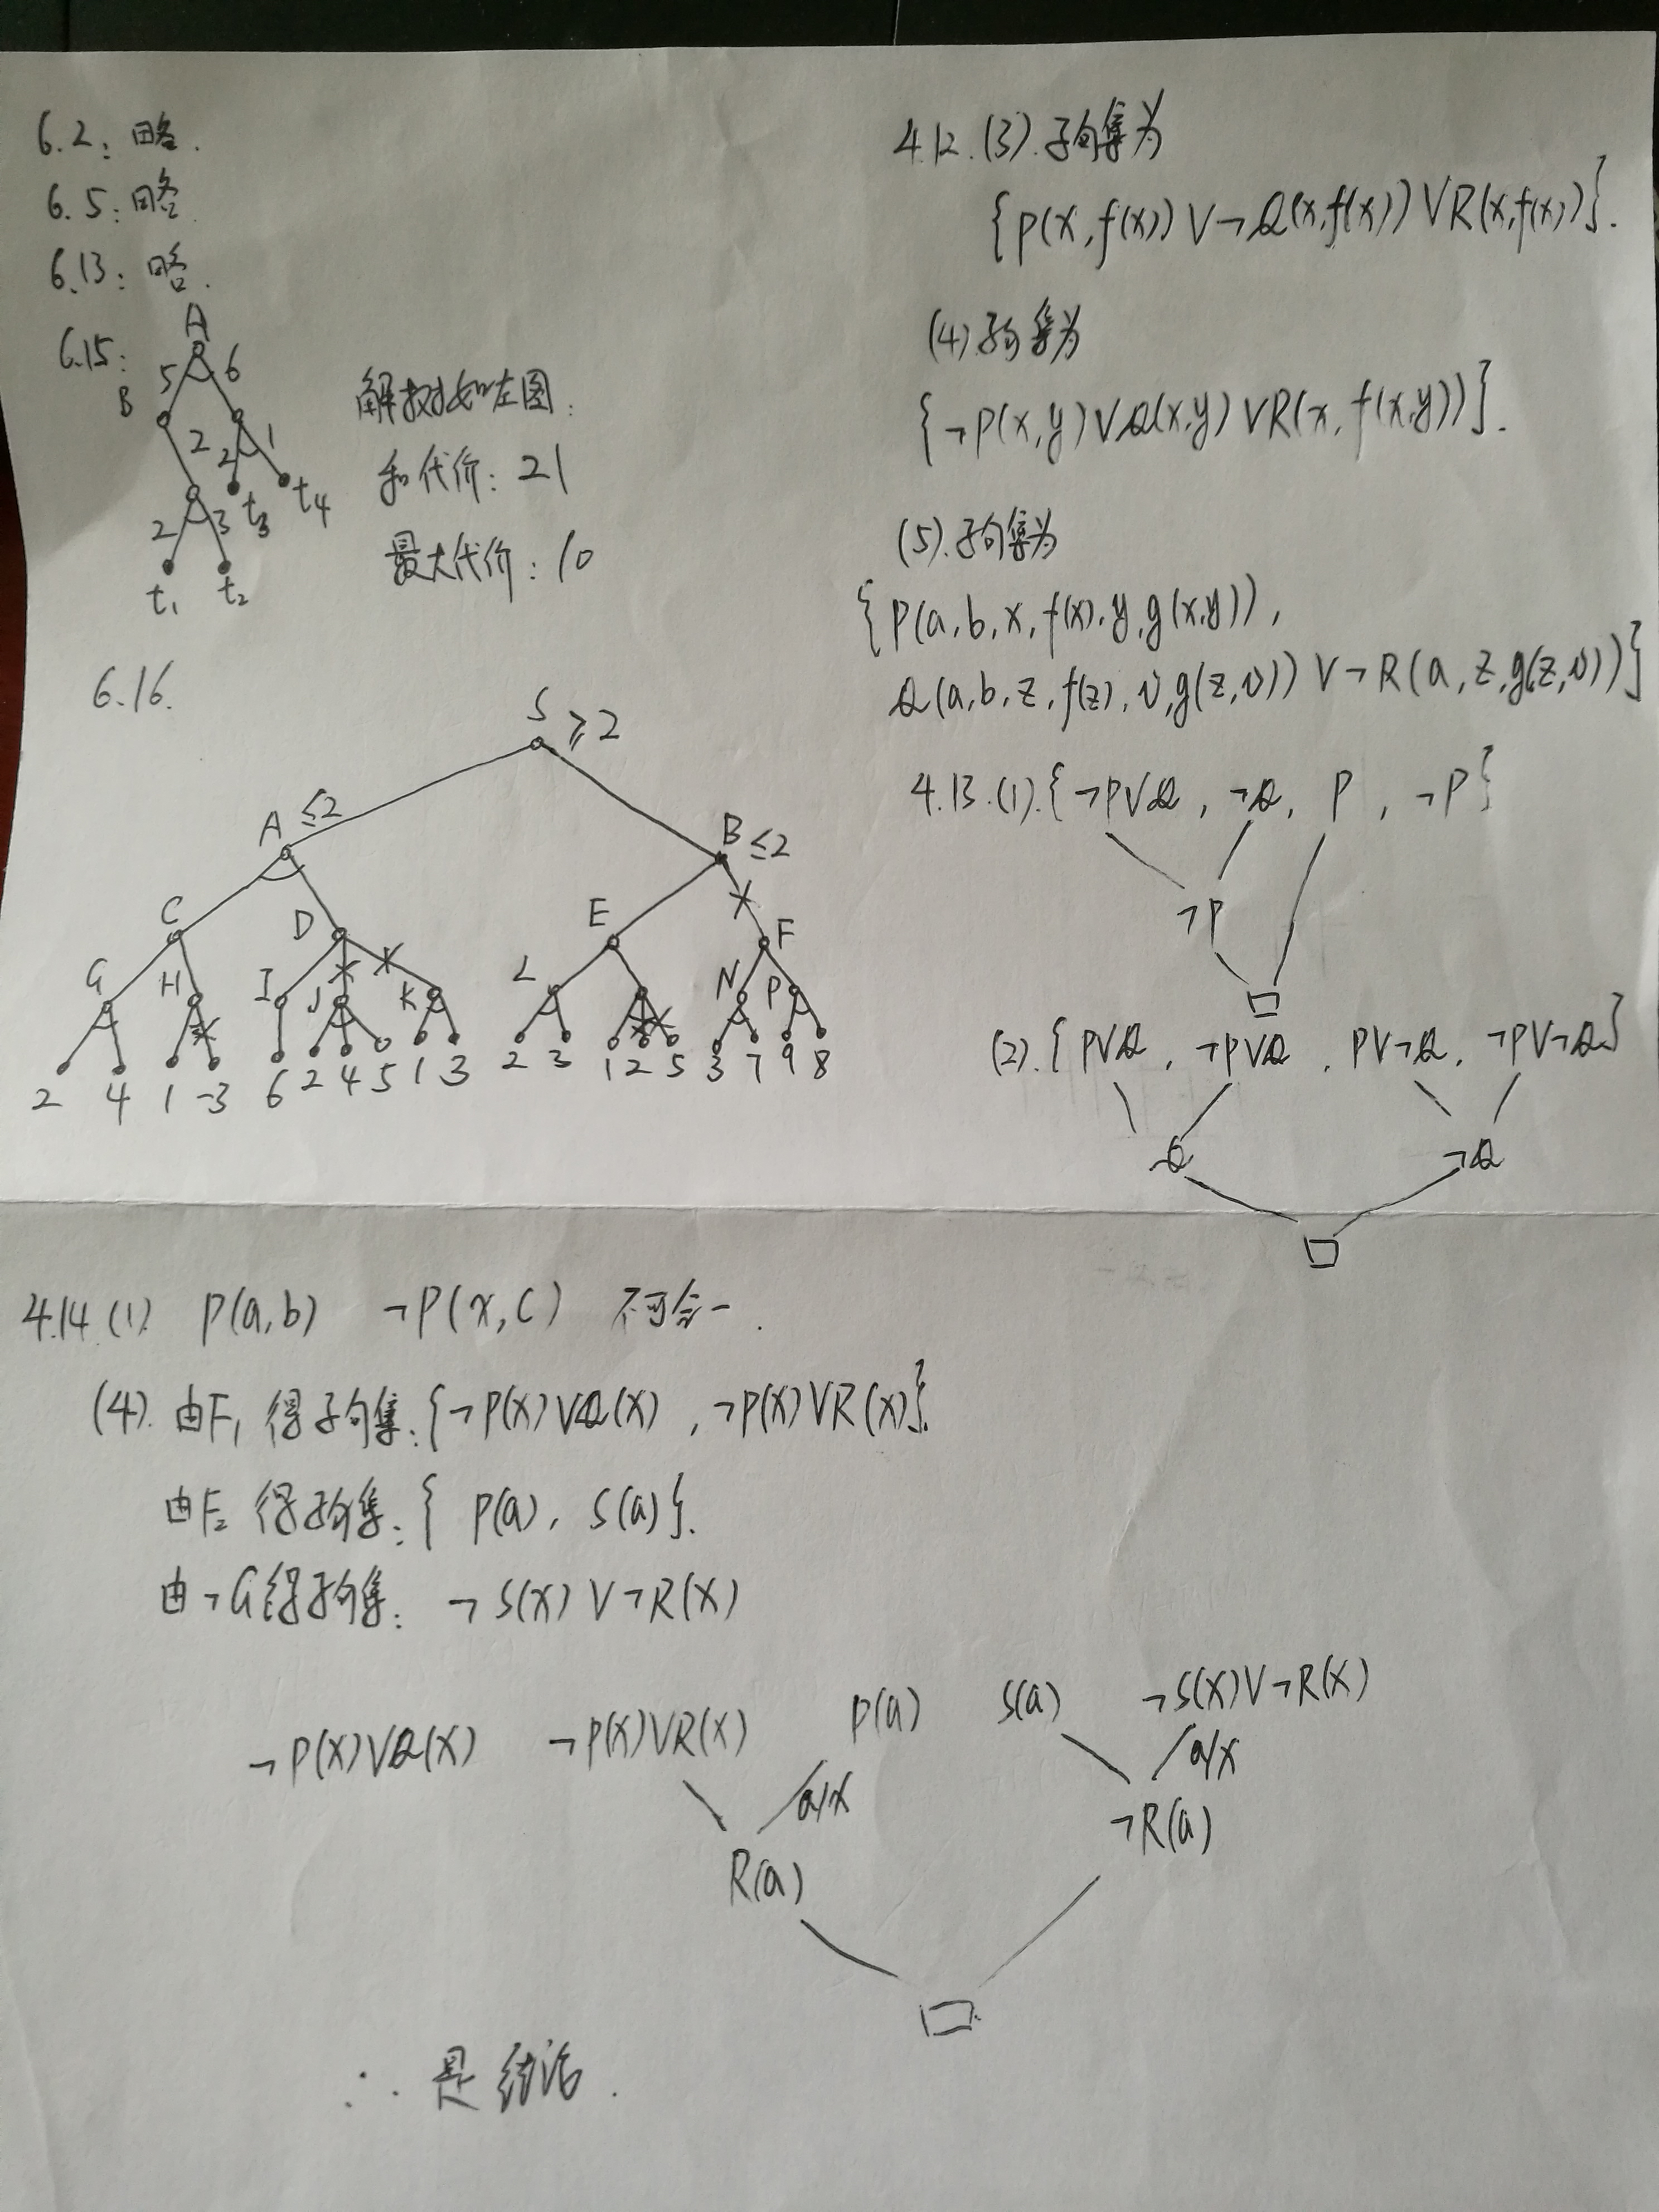 6.2：略.
6.5：略.
6.13：略.
6.15：
A
5 6
B
2 2 1
2 3 t3 t4
t1 t2
解树如左图：
和代价：21
最大代价：10
6.16.
S ≥2
A ≤2 B ≤2
C D E F
G H I J K L N P
2 4 1 -3 6 2 4 5 1 3 2 3 1 2 5 3 7 9 8
4.12.(3).子句集为
{P(x,f(x))∨¬Q(x,f(x))∨R(x,f(x))}.
(4)子句集为
{¬P(x,y)∨Q(x,y)∨R(x,f(x,y))}.
(5).子句集为
{P(a,b,x,f(x),y,g(x,y)),
Q(a,b,z,f(z),v,g(z,v))∨¬R(a,z,g(z,v))}
4.13.(1).{¬P∨Q, ¬Q, P, ¬P}
¬P
□
(2).{P∨Q, ¬P∨Q, P∨¬Q, ¬P∨¬Q}
Q ¬Q
□
4.14.(1) P(a,b) ¬P(x,c) 不可合一.
(4).由F1得子句集:{¬P(x)∨Q(x), ¬P(x)∨R(x)}.
由F2得子句集:{P(a), S(a)}.
由¬G得子句集: ¬S(x)∨¬R(x)
¬P(x)∨Q(x) ¬P(x)∨R(x) P(a) S(a) ¬S(x)∨¬R(x)
a/x a/x
R(a) ¬R(a)
□
∴是结论.